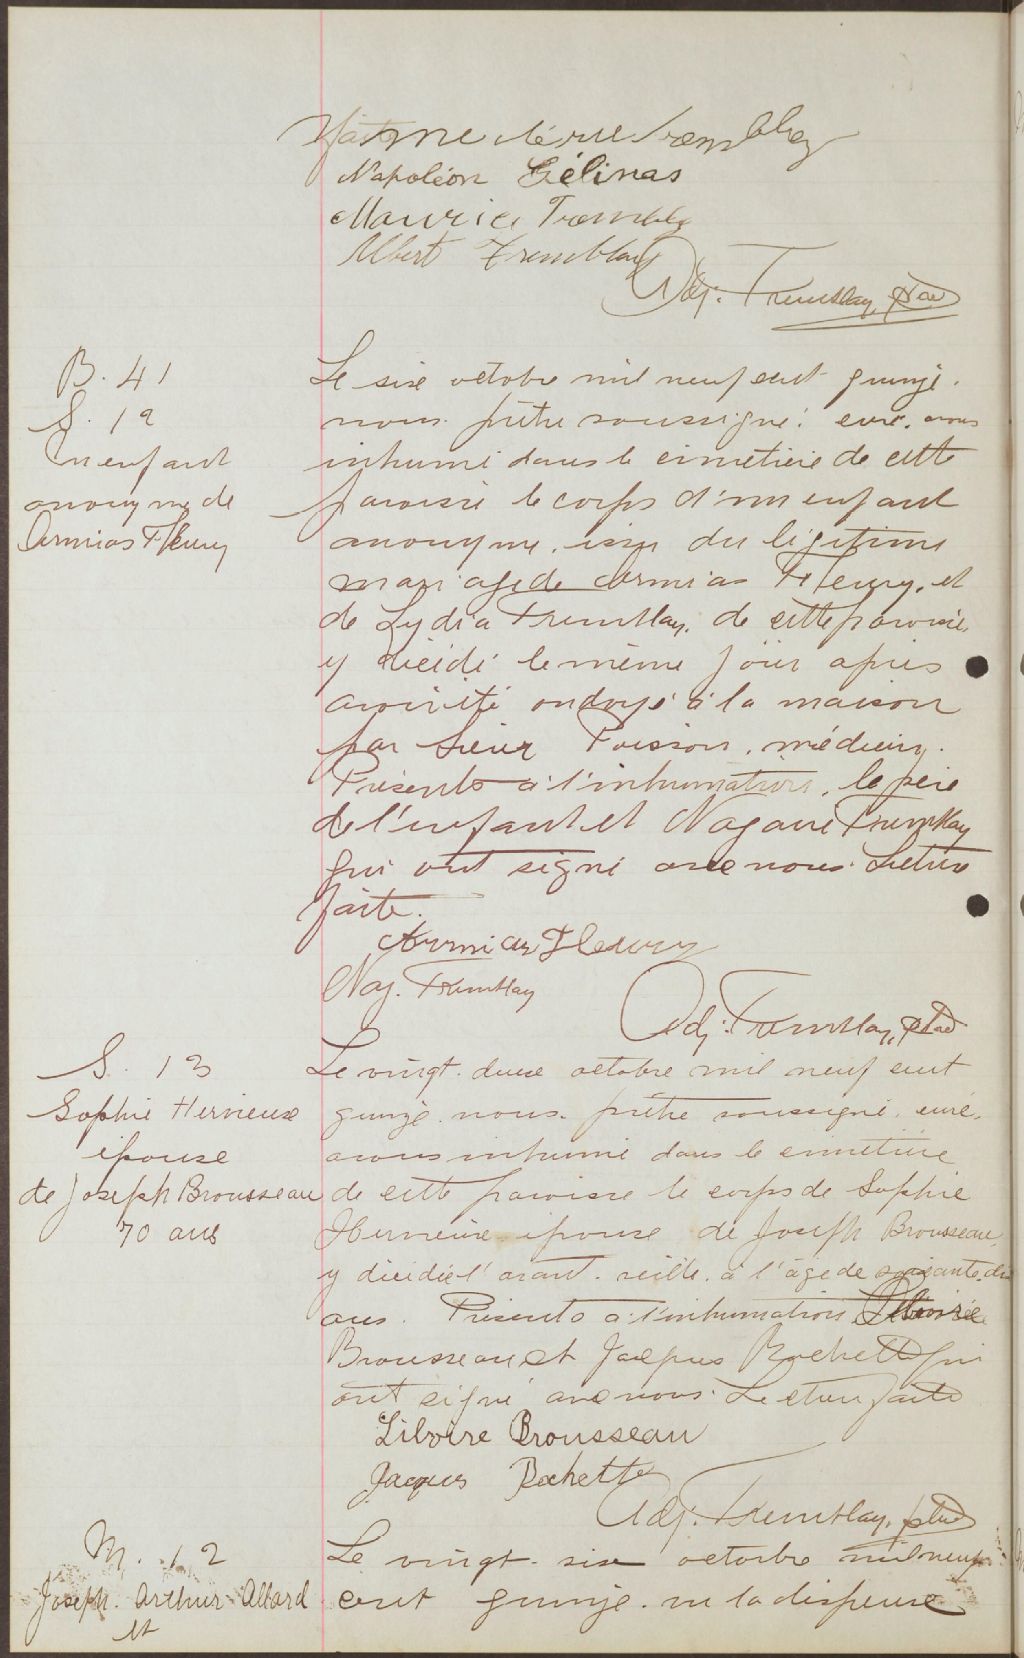 Napoléon Gélinas
Maurice Tremblay
Albert Tremblay
Adj. Tremblay, ptre
B. 41
S. 12
un enfant
anonyme de
Armias Fleury
Le six octobre mil neuf cent quinze
nous prêtre soussigné, curé, avons
inhumé dans le cimetière de cette
paroisse le corps d'un enfant
anonyme, issu du légitime
mariage de Armias Fleury, et
de Lydia Tremblay, de cette paroisse,
y décédé le même jour après
avoir été ondoyé à la maison
par Sieur Poisson, médecin.
Présents à l'inhumation, le père
de l'enfant et Nazaire Tremblay
qui ont signé avec nous. Lecture
faite.
Armias Fleury
Naz. Tremblay
Adj. Tremblay, ptre
S. 13
Sophie Hervieux
épouse
de Joseph Brousseau
70 ans
Le vingt-deux octobre mil neuf cent
quinze nous, prêtre soussigné, curé,
avons inhumé dans le cimetière
de cette paroisse le corps de Sophie
Hervieux épouse de Joseph Brousseau,
y décédée l'avant-veille, à l'âge de soixante-dix
ans. Présents à l'inhumation Liboire
Brousseau et Jacques Rochette qui
ont signé avec nous. Lecture faite
Liboire Brousseau
Jacques Rochette
Adj. Tremblay, ptre
M. 12
Joseph. Arthur Allard
et
Le vingt-six octobre mil neuf
cent quinze. vu la dispense